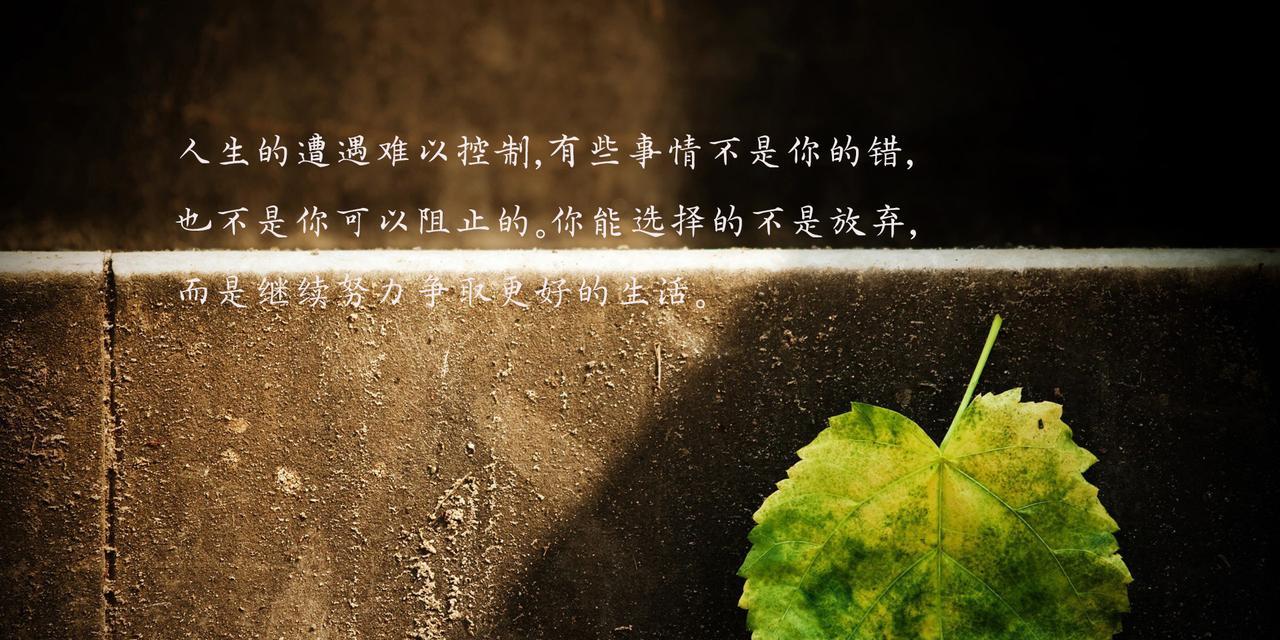 人生的遭遇难以控制,有些事情不是你的错,
也不是你可以阻止的。你能选择的不是放弃,
而是继续努力争取更好的生活。